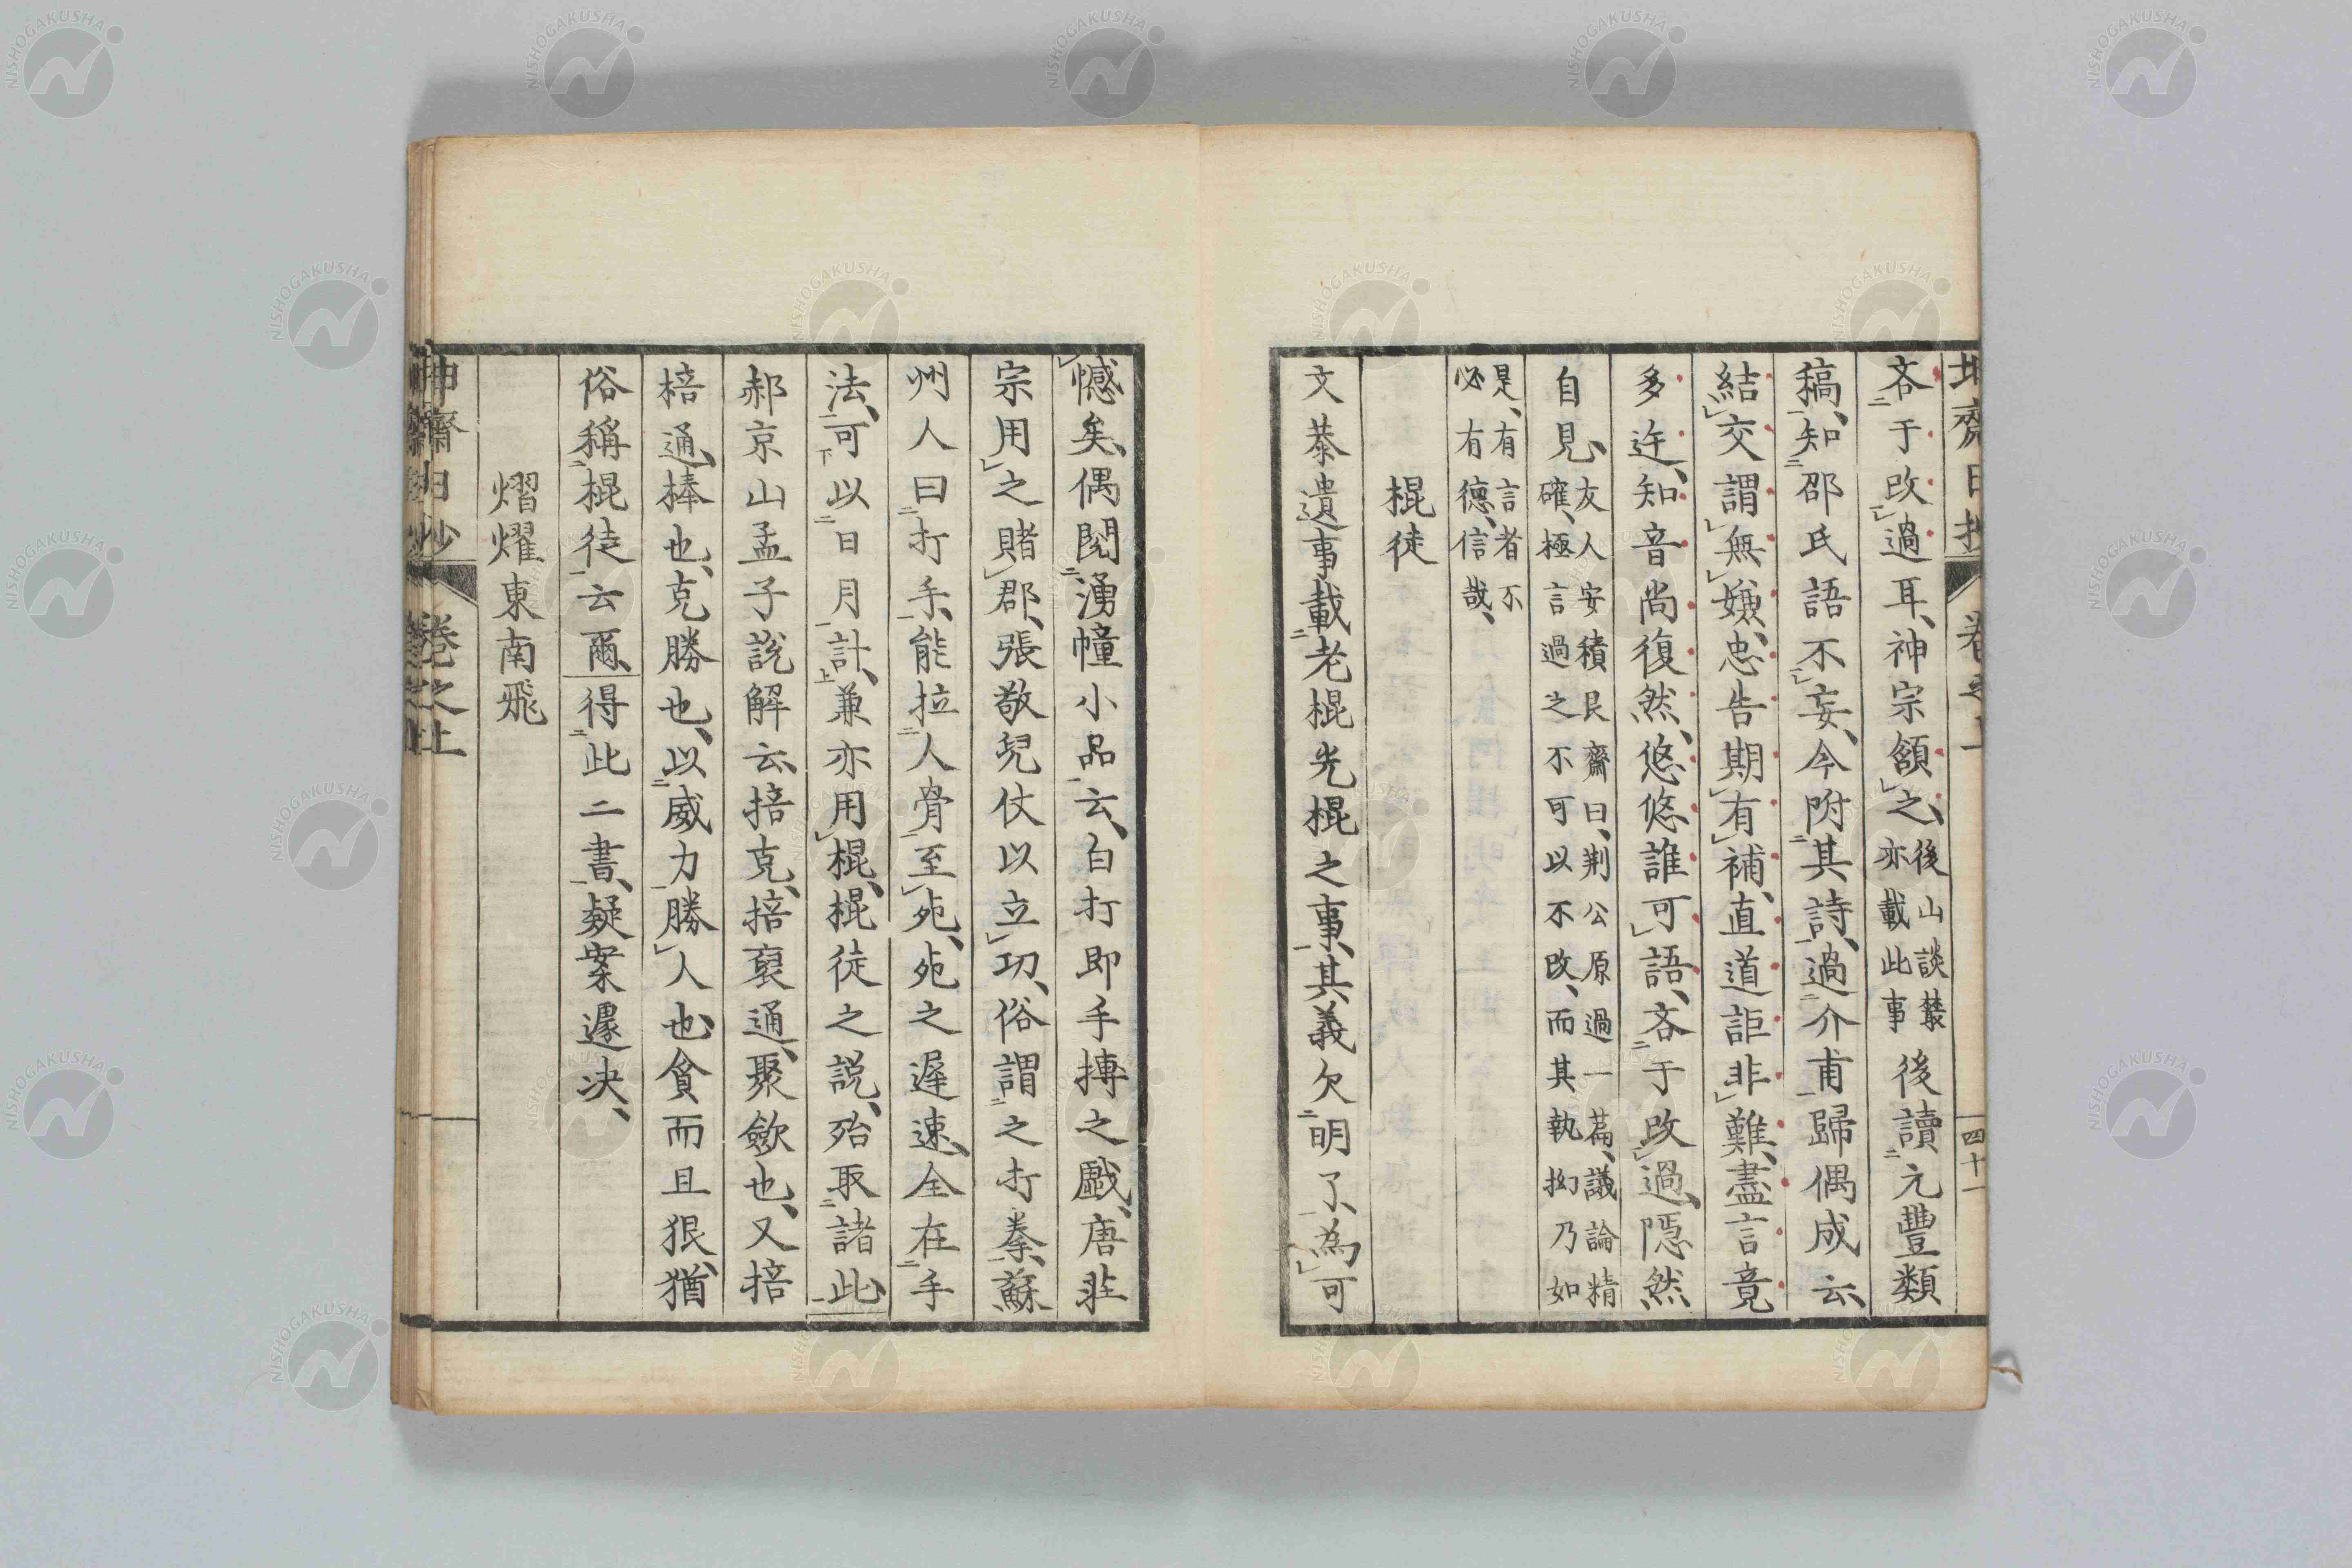 吝于改過耳、神宗頷之、後山談叢亦載此事後讀元豐類
稿、知邵氏語不妄、今附其詩、過介甫歸偶成云、
結交謂無嫌、忠告期有補、直道詎非難、盡言竟
多迕、知音尚復然、悠悠誰可語、吝于改過、隠然
自見、友人安積艮齋曰、荆公原過一篇、議論精確、極言過之不可以不改、而其執拗乃如
是、有言者不必有德、信哉、
棍徒
文恭遺事載老棍光棍之事、其義欠明了、為可
憾矣、偶閱湧幢小品云、白打即手搏之戲、唐莊
宗用之賭郡、張敬兒仗以立功、俗謂之打拳、蘇
州人曰打手、能拉人骨至死、死之遲速、全在手
法、可以日月計、兼亦用棍、棍徒之説、殆取諸此、
郝京山孟子説解云、掊克、掊裒通、聚斂也、又掊
棓通、棒也、克勝也、以威力勝人也、貪而且狠、猶
俗稱棍徒云爾、得此二書、疑案遽决、
熠燿東南飛
卷之上
四十一
NISHOGAKUSHA